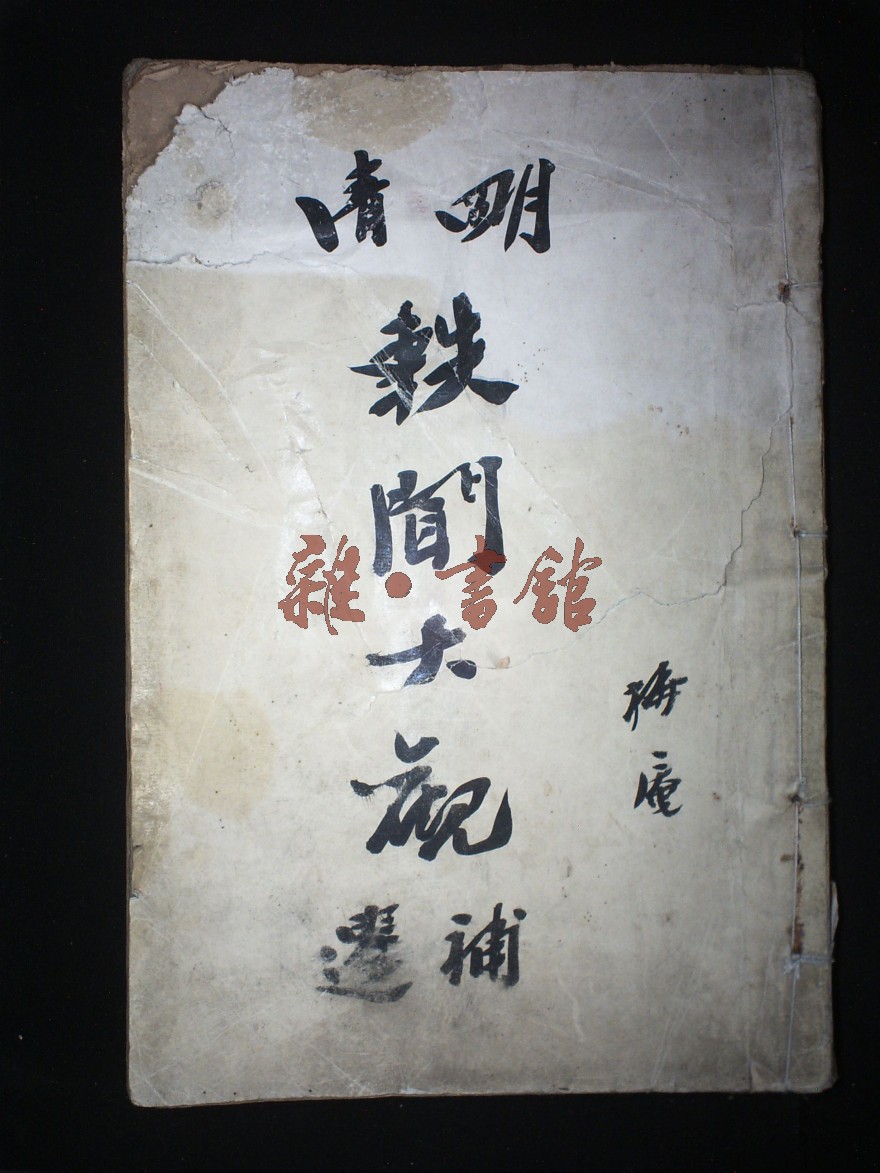 明清
軼
聞
大
觀
補選
梅庵
雜·書館